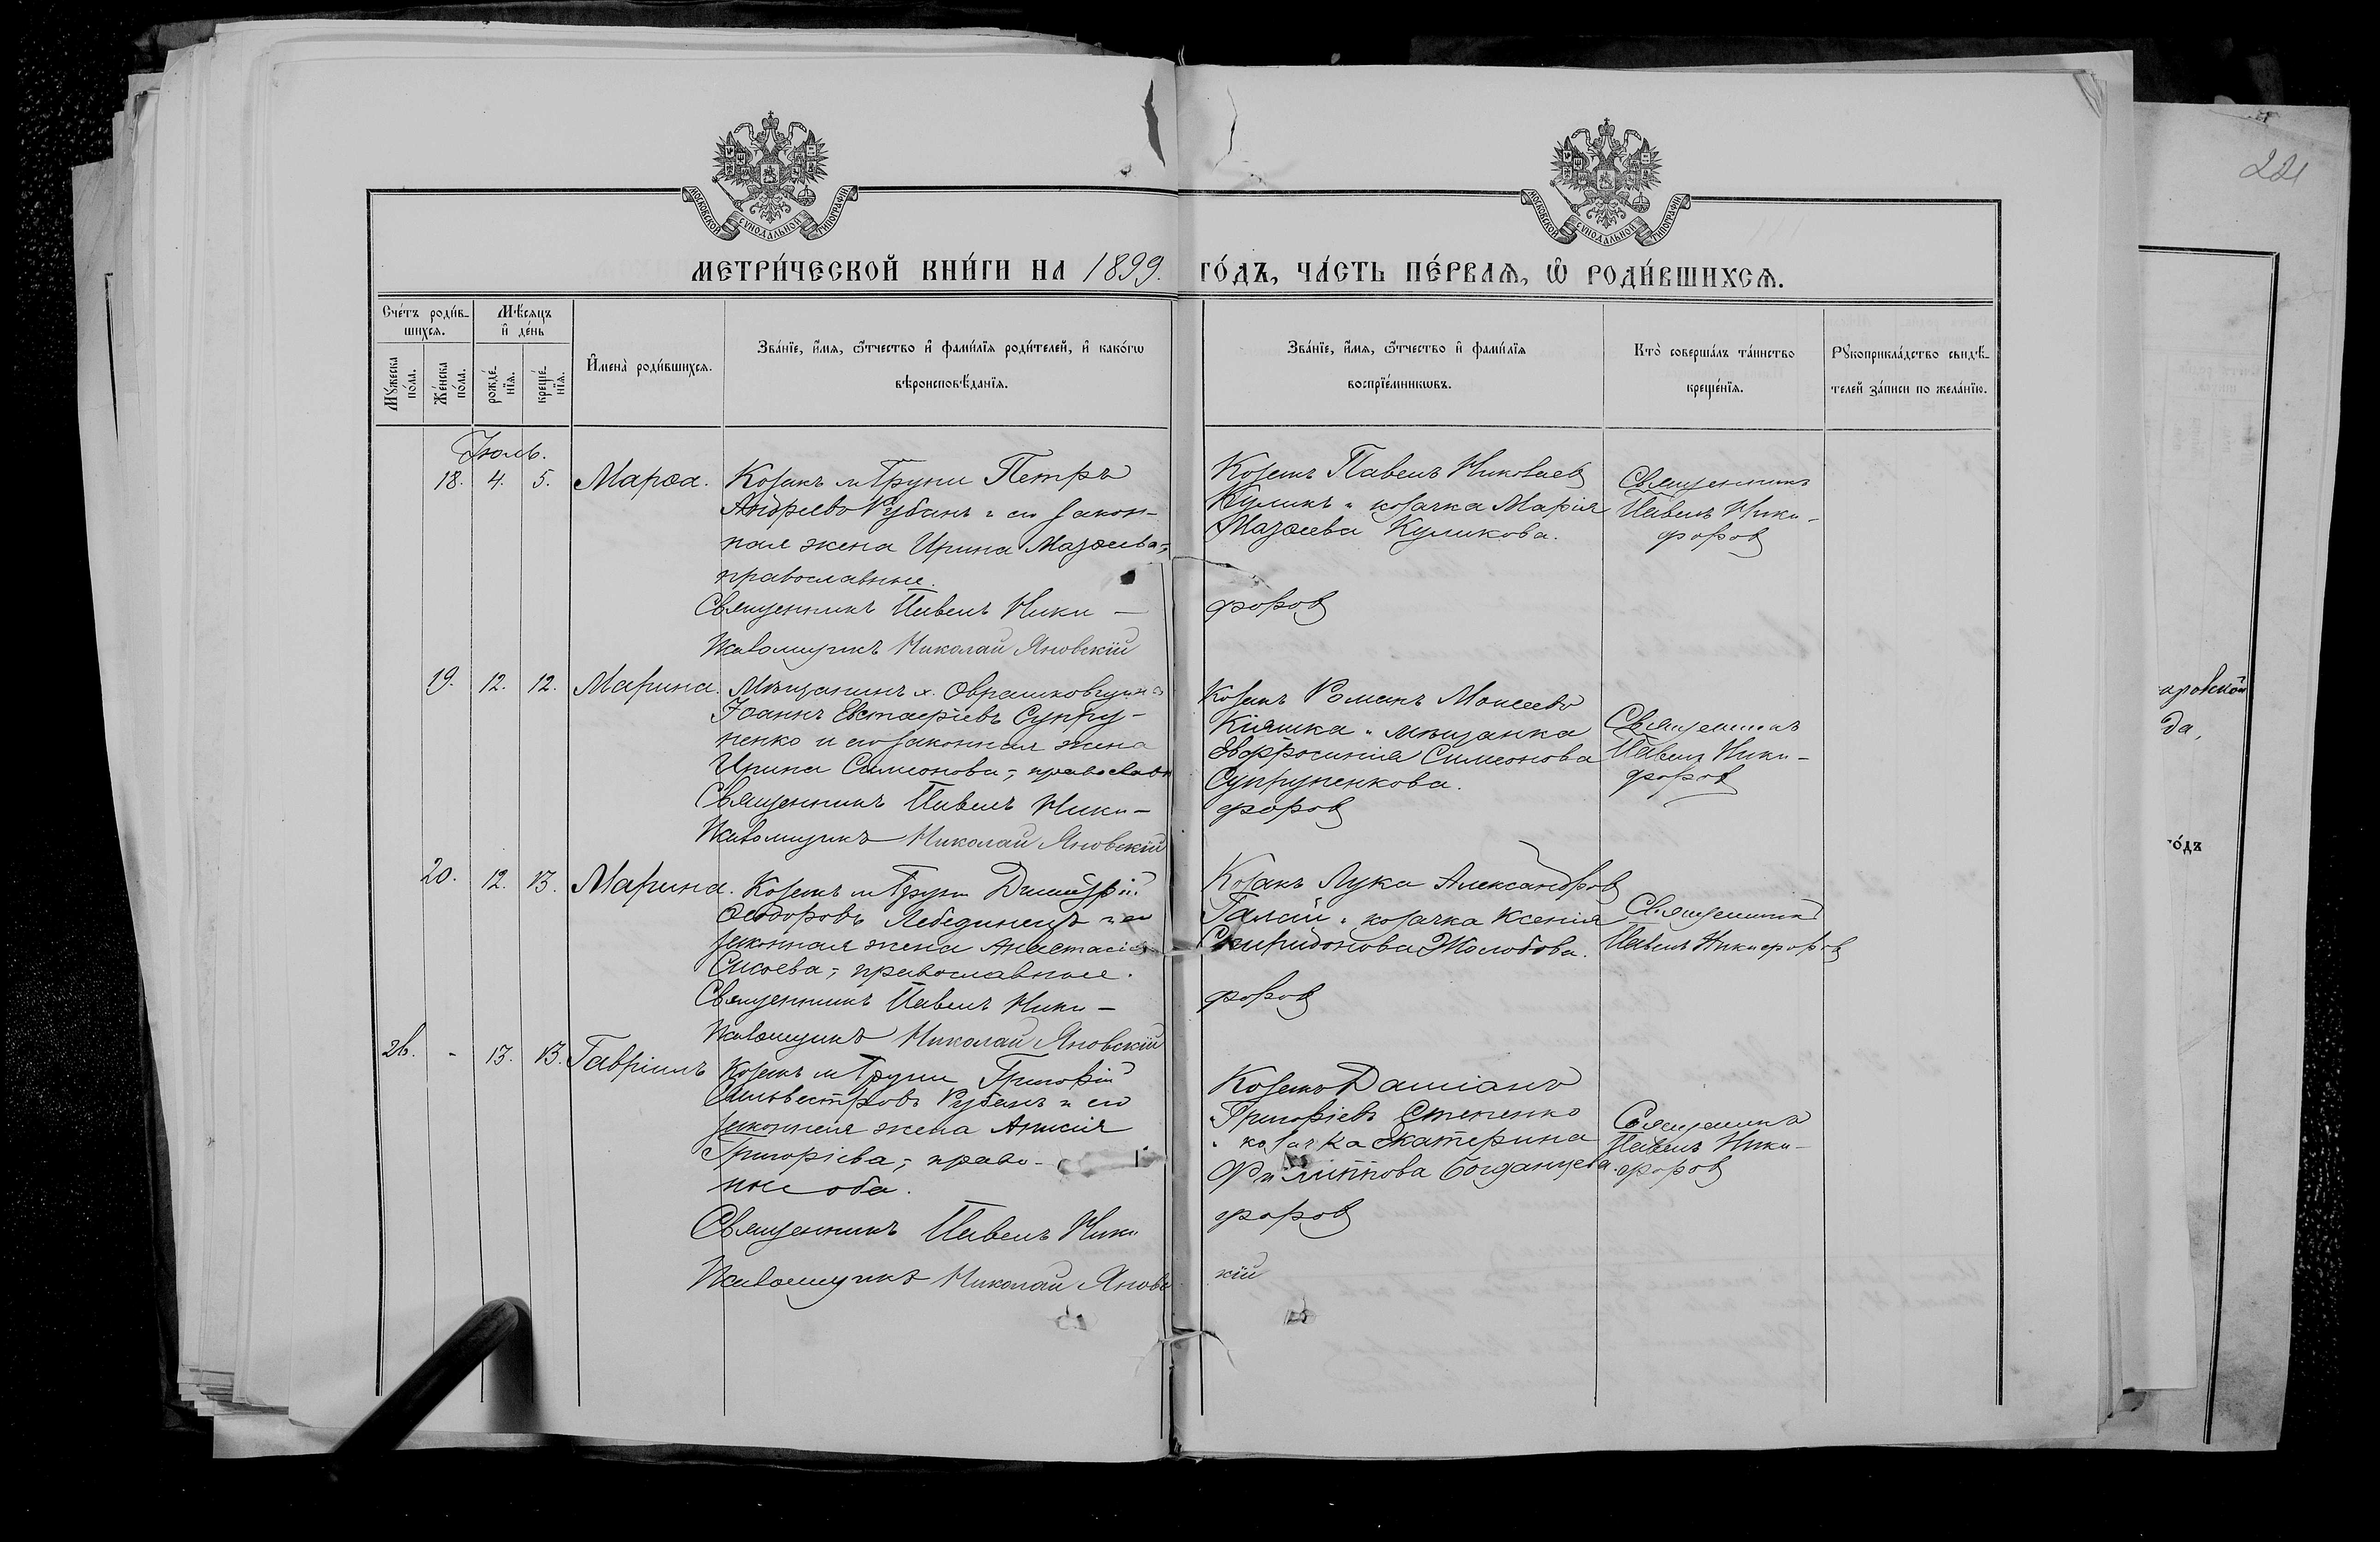 221
МОСКОВСКОЙ СѴНОДАЛЬНОЙ ТИПОГРАФІИ
МОСКОВСКОЙ СѴНОДАЛЬНОЙ ТИПОГРАФІИ
МЕТРИ́ЧЕСКОЙ КНИ́ГИ НА 1899. ГО́ДЪ, ЧА́СТЬ ПЕ́РВАѦ, Ѡ҆ РОДИ́ВШИХСѦ.
Сче́тъ роди́в-
шихсѧ.
Мѣ́сѧцъ
и҆ де́нь
Мꙋ́жеска
по́ла.
Же́нска
по́ла.
рожде́-
нїѧ.
креще́-
нїѧ.
И҆мена̀ роди́вшихсѧ.
Зва́нїе, и҆́мѧ, ѻ҆́тчество и҆ фами́лїѧ роди́телей, и҆ како́гѡ
вѣроисповѣ́данїѧ.
Зва́нїе, и҆́мѧ, ѻ҆́тчество и҆ фами́лїѧ
воспрїе́мникѡвъ.
Кто̀ соверша́лъ та́инство
креще́нїѧ.
Рꙋкоприкла́дство свидѣ́-
телей за́писи по жела́нїю.
Іюль.
18. 4. 5. Марѳа.
Козакъ м Груни Петръ
Андреевъ Рубанъ и его закон-
ная жена Ирина Матѳеева,
православные.
Священникъ Павелъ Ники-
форов
Псаломщикъ Николай Яновскій
Козакъ Павелъ Николаев
Куликъ и козачка Марія
Матѳеева Куликова.
Священникъ
Павелъ Ники-
форов
19. 12. 12. Марина.
Мѣщанинъ х. Оврашковщина
Іоаннъ Евстафіевъ Супру-
ненко и его законная жена
Ирина Симеонова, православн
Священникъ Павелъ Ники-
форов
Псаломщикъ Николай Яновскій
Козакъ Романъ Моисеевъ
Кіяшка и мѣщанка
Евфросинія Симеонова
Супруненкова.
Священникъ
Павелъ Ники-
форов
20. 12. 13. Марина.
Козакъ м Груни Димитрій
Ѳеодоровъ Лебединецъ и его
законная жена Анастасія
Сисоева, православные.
Священникъ Павелъ Ники-
форов
Псаломщикъ Николай Яновскій
Козакъ Лука Александров
Галай и козачка Ксенія
Спиридонова Жолобова.
Священникъ
Павелъ Никифоров
26. - 13. 13. Гавріилъ
Козакъ м Груни Григорій
Сильвестровъ Рубанъ и его
законная жена Анисія
Григоріева, право-
ные оба.
Священникъ Павелъ Ники
форов
Псаломщикъ Николай Яновс
кій
Козакъ Даміанъ
Григоріевъ Степенко
и козачка Екатерина
Филиппова Богданцева.
Священникъ
Павелъ Ники-
форов
аровской
да,
го́дъ